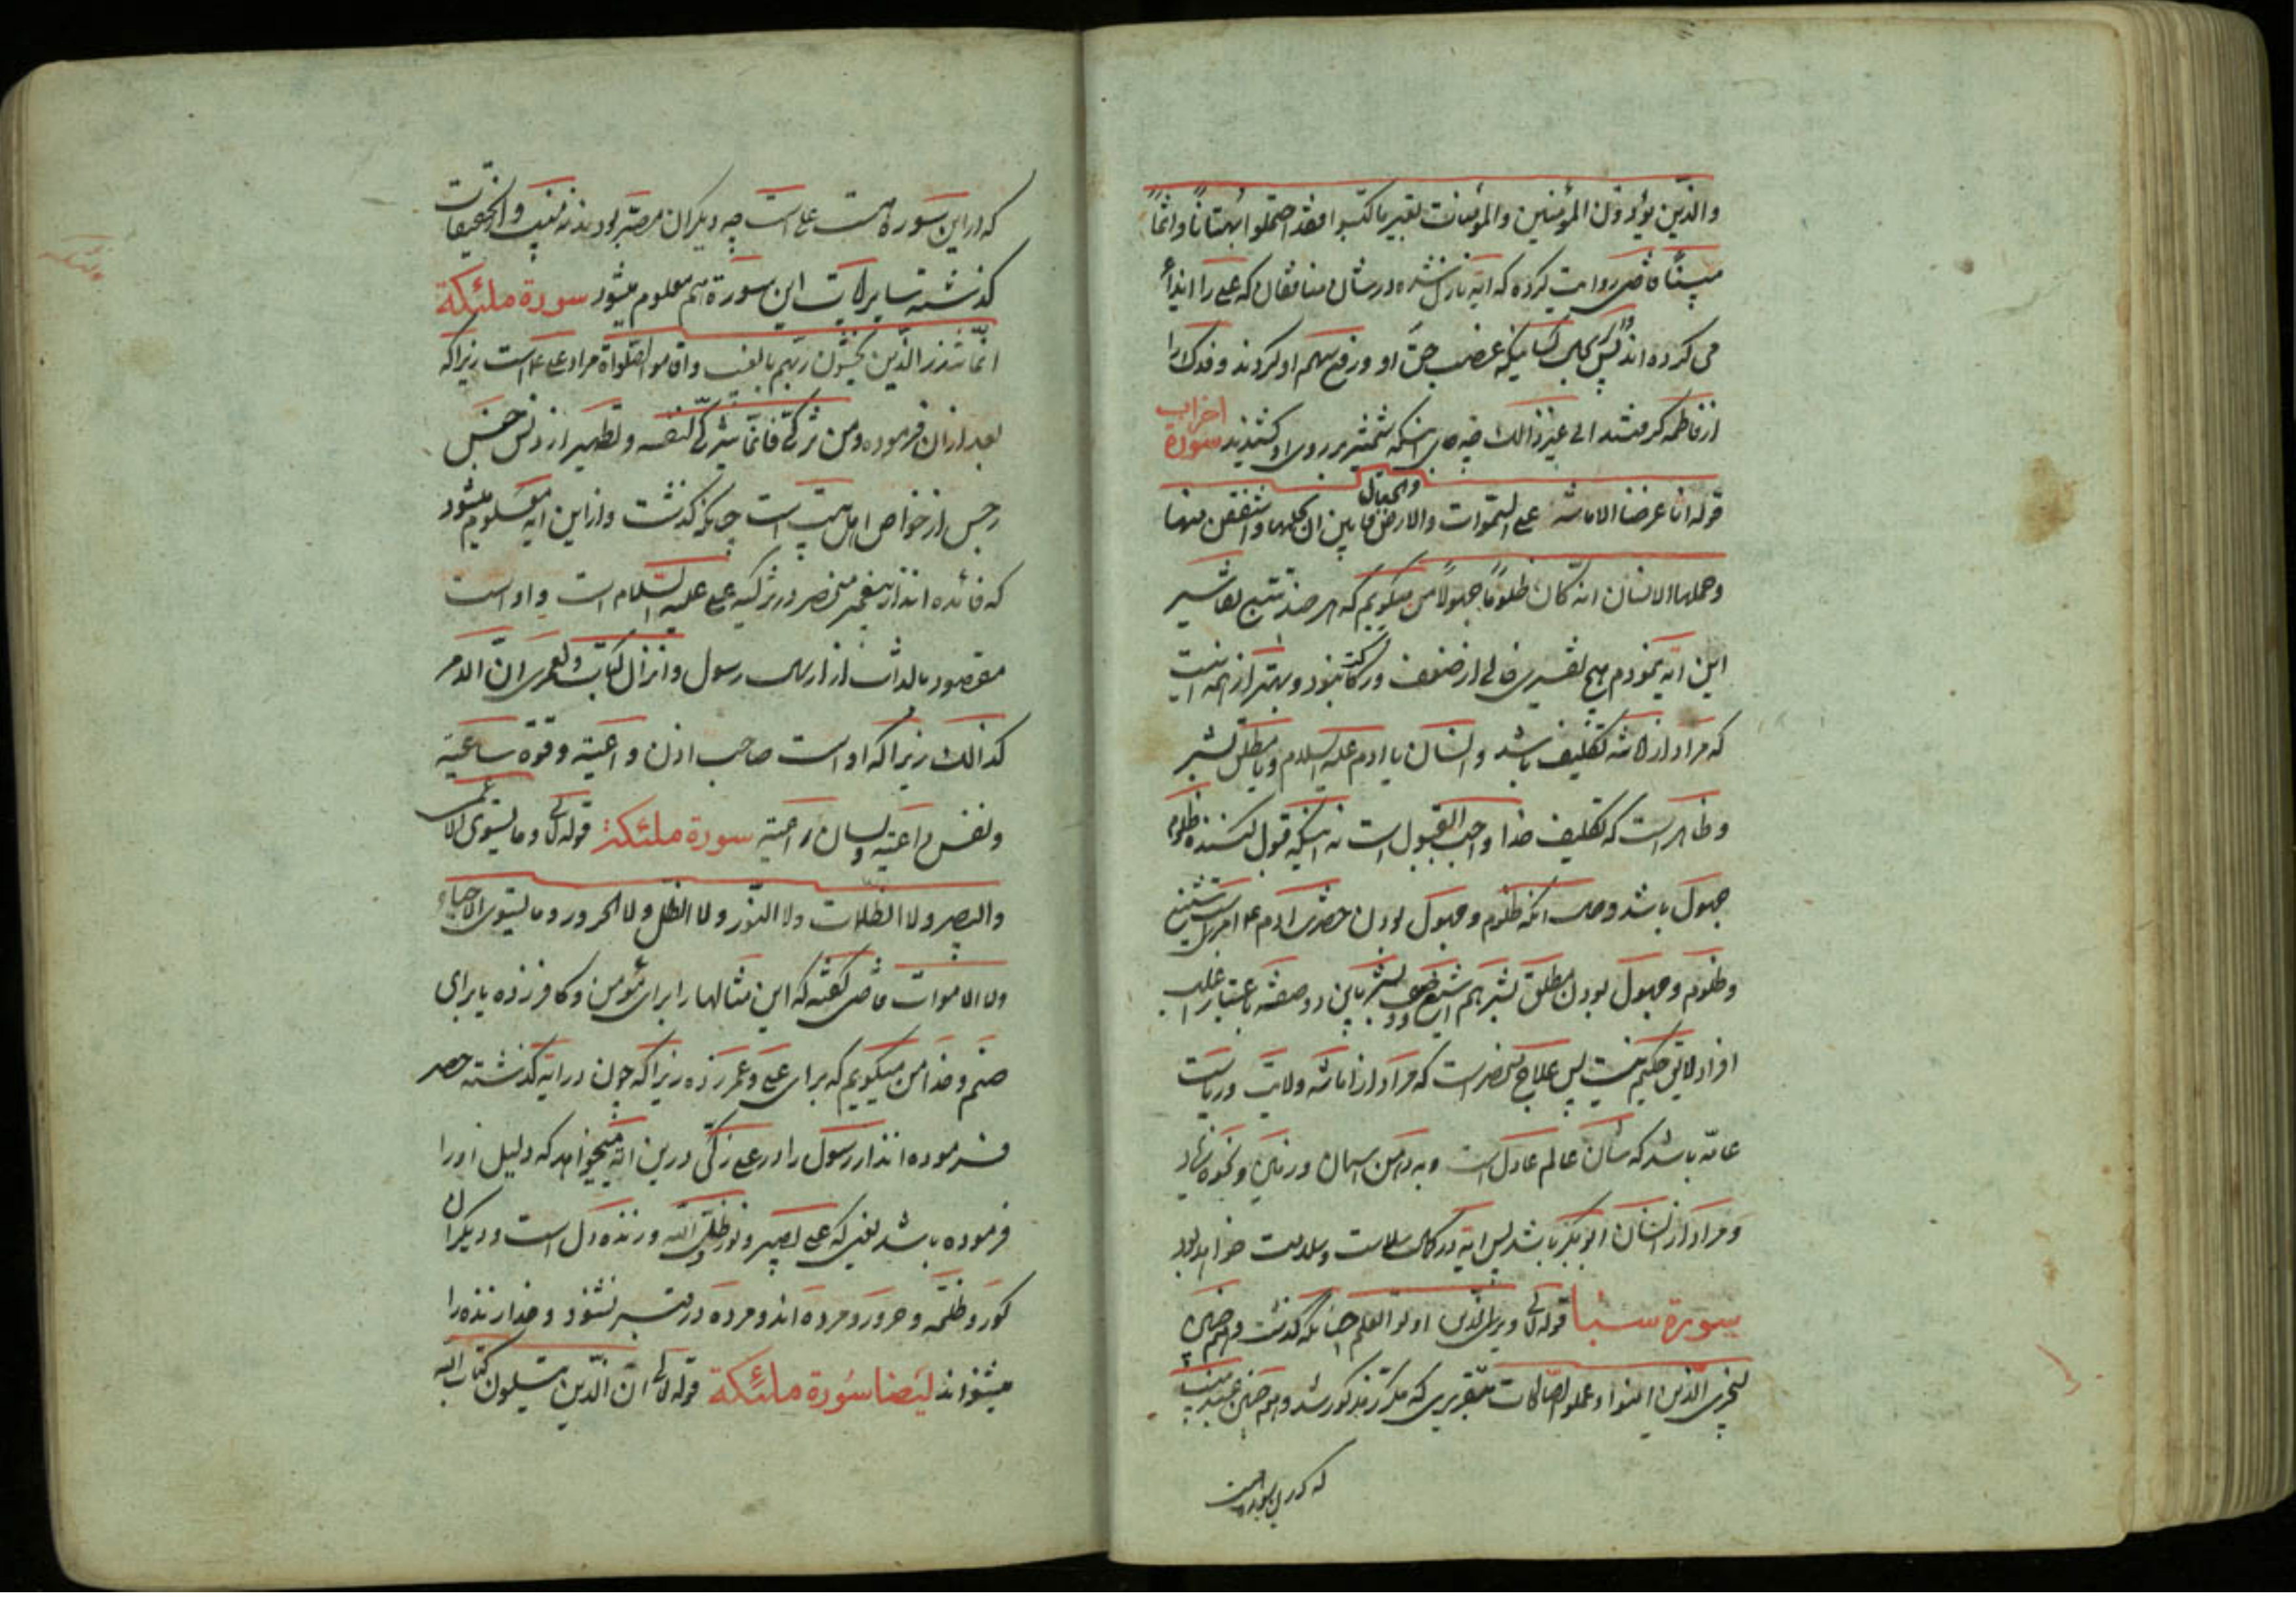 والذین یؤذون المؤمنین والمؤمنات بغیر ما اکتسبوا فقد احتملوا بهتانا واثما
مبینا قاضی روایت کرده که ایه نازل شده در شان منافقان که علی را ایذاء
می کرده اند پس وای بحال کسانیکه غصب حق او و رفع سهم او کردند و فدک را
از فاطمه گرفتند الی غیر ذالک چه جای اینکه شمشیر بر روی او کشیدند سورة احزاب
قوله انا عرضنا الامانة علی السموات والارض والجبال فابین ان یحملنها واشفقن منها
وحملها الانسان انه کان ظلوما جهولا من میگویم که هر چند تتبع تفاسیر
این ایه نمودم هیچ تفسیری خالی از ضعف و رکاکت نبود و بهتر از همه اینست
که مراد از امانة تکلیف باشد و انسان یا ادم علیه السلام و یا مطلق بشر
و ظاهر است که تکلیف خدا واجب القبول است نه اینکه قبول کننده ظلوم
جهول باشد و حال انکه ظلوم و جهول بودن حضرت ادم ع امریست شنیع
و ظلوم و جهول بودن مطلق بشر هم وصف بشر باین دو صفة باعتبار اغلب
افراد لایق حکیم نیست پس علاج منحصر است که مراد از امانة ولایت و ریاست
عامه باشد که شان عالم عادل است
و مراد از انسان ابوبکر باشد پس ایه در کمال سلاست و سلامت خواهد بود
سورة سبا قوله تع ویری الذین اوتوا العلم چنانکه گذشت و هم چنین
لیجزی الذین امنوا وعملوا الصالحات بتقریری که مکرر مذکور شد و هم چنین عبد منیب
که در این سوره است
که در این سوره است علی است چه دیگران مصر بودند نه منیب و از تحقیقات
گذشته سایر ایات این سورة هم معلوم میشود سورة ملئکة
انما تنذر الذین یخشون ربهم بالغیب واقاموا الصلواة مراد علی ع است زیرا که
بعد از ان فرموده ومن تزکی فانما یتزکی لنفسه و تطهیر از دنس
رجس از خواص اهل بیت است چنانکه گذشت و از این ایه معلوم میشود
که فائده انذار پیغمبر منحصر در تزکیه علی علیه السلام است و او است
مقصود بالذات از ارسال رسول و انزال کتاب و لعمری ان الامر
کذالک زیرا که او است صاحب اذن واعیة و قوة ساعیة
و نفس داعیة و لسان راعیة سورة ملئکة قوله تع وما یستوی الاعمی
والبصیر ولا الظلمات ولا النور ولا الظل ولا الحرور وما یستوی الاحیاء
ولا الاموات قاضی گفته که این مثالها را برای مؤمن و کافر زده یا برای
صنم و خدا من میگویم که برای علی و عمر زده زیرا که چون در ایه گذشته حصر
فرموده انذار رسول را در علی زکی درین ایه میخواهد که دلیل او را
فرموده باشد یعنی که علی بصیر و نور و ظل الله و زنده دل است و دیگران
کور و ظلمة و حرور و مرده اند و مرده در قبر نشنود و خدا زنده را
میشنواند ایضا سورة ملئکة قوله تع ان الذین یتلون کتاب الله